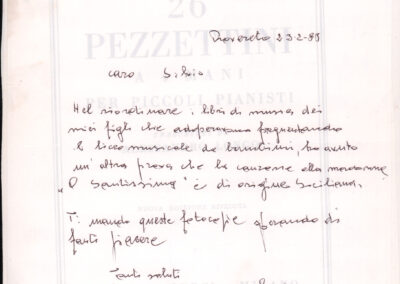 26
Rovereto 23-2-89
PEZZETTINI
caro Silvio
A MANI
PER PICCOLI PIANISTI
Nel riordinare i libri di musica dei
miei figli che adoperavano frequentando
il liceo musicale da bambini, ho avuto
un'altra prova che la canzone alla madonna
"O Santissima" è di origine Siciliana.
NUOVA EDIZIONE RIVEDUTA
Ti mando queste fotocopie sperando di
farti piacere
Tanti saluti